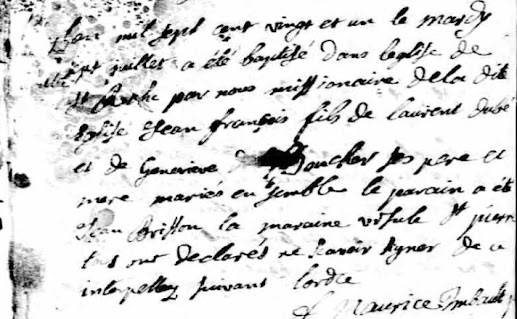 Lan mil sept cent vingt et un le mardy
juillet a été baptisé dans leglise de
par nous missionaire de la dite
Eglise Jean françois fils de laurent dubé
et de Genevieve Boucher ses pere et
mere mariés ensemble le parain a été
Jean Brisson la maraine ursule St pierre
ont declarés ne scavoir signer de ce
interpellez suivant lordce
f Maurice Imbault